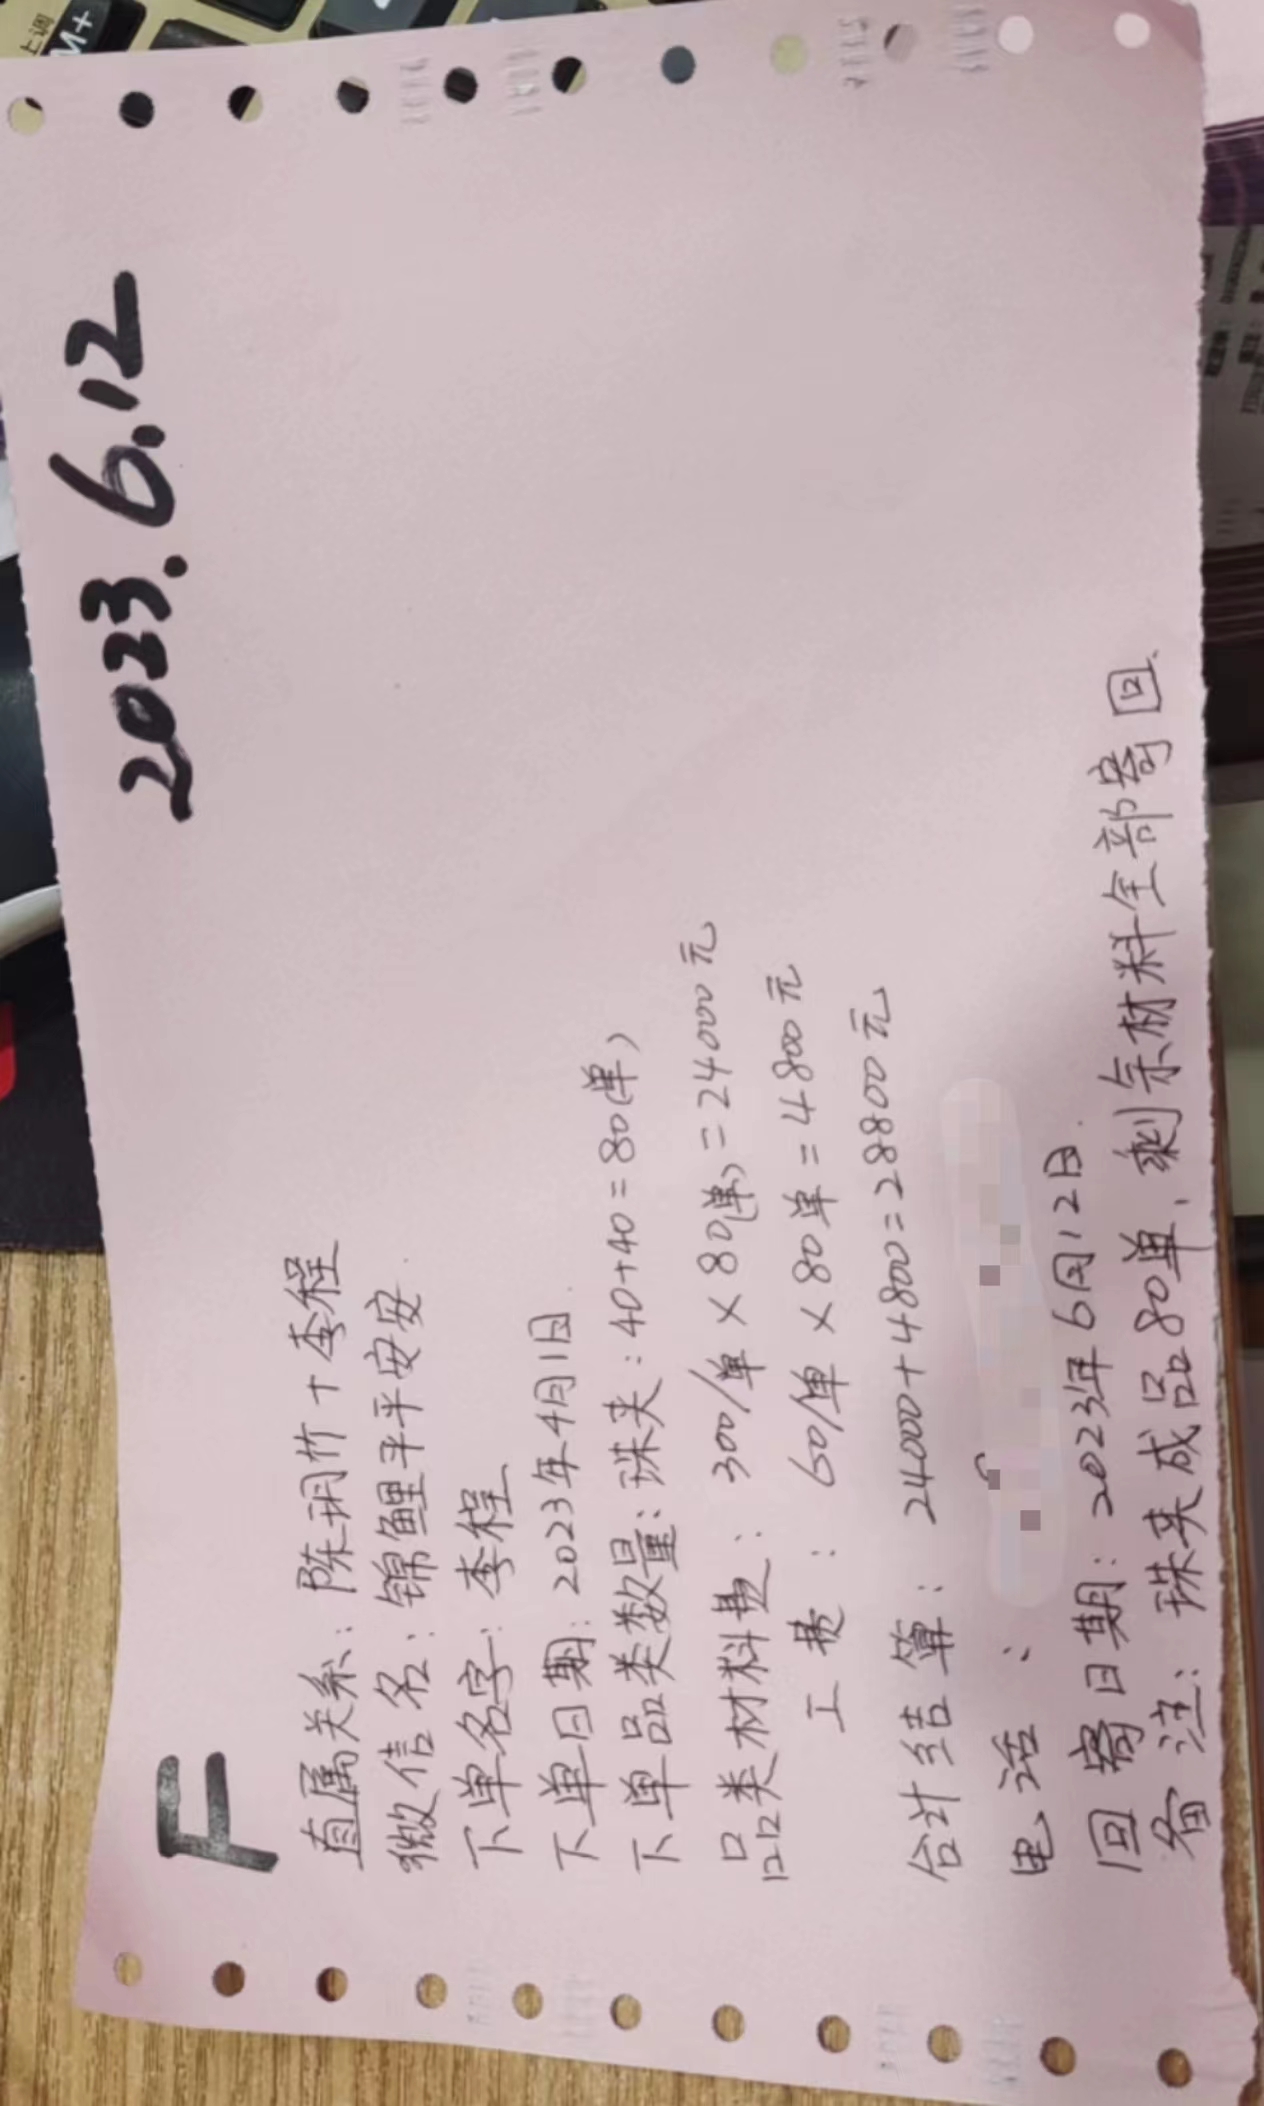 2023.6.12
F
直属关系：陈玥竹+李程
微信名：锦鲤平平安安.
下单名字：李程
下单日期：2023年4月1日.
下单品类数量：珠夹：40+40=80(单)
品类材料费：300/单×80(单)=24000元
工费：60/单×80单=4800元
合计结算：24000+4800=28800元
电话：
回寄日期：2023年6月12日.
备注：珠夹成品80单，剩余材料全部寄回.
上调
M+